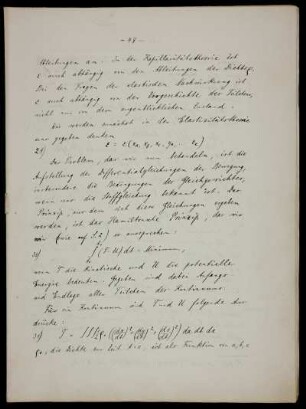 - 48 -
Ableitungen an. In der Kapillaritätstheorie ist
ε auch abhängig von den Ableitungen der Dichte.
Bei den Fragen der elastischen Nachwirkung ist
ε auch abhängig von der Vorgeschichte der Teilchen,
nicht nur von dem augenblicklichen Zustand.
Wir werden zunächst in der Elastizitätstheorie
uns gegeben denken
2) ε = ε(
Das Problem, das wir nun behandeln, ist die
Aufstellung der Differentialgleichungen der Bewegung,
insbesondere die Bedingungen des Gleichgewichts,
wenn nur die Stoffgleichung bekannt ist. Das
Prinzip, aus dem sich diese Gleichungen ergeben
werden, ist das Hamiltonsche Prinzip, das wir
wie auf S. 2) so aussprechen:
∫ (T-U) dt = Minimum,
wenn T die kinetische und U die potentielle
Energie bedeuten. Gegeben sind dabei Anfangs-
und Endlage aller Teilchen des Kontinuums.
Für ein Kontinuum sind T und U folgende Aus-
drücke:
T = ∫∫∫
die Dichte zur Zeit t=0, ist als Funktion von a, b, c